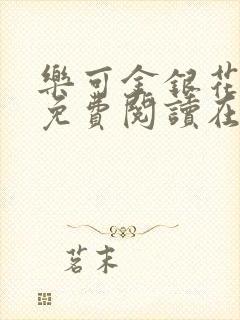 樂可金銀花
免費閱讀在
茗末